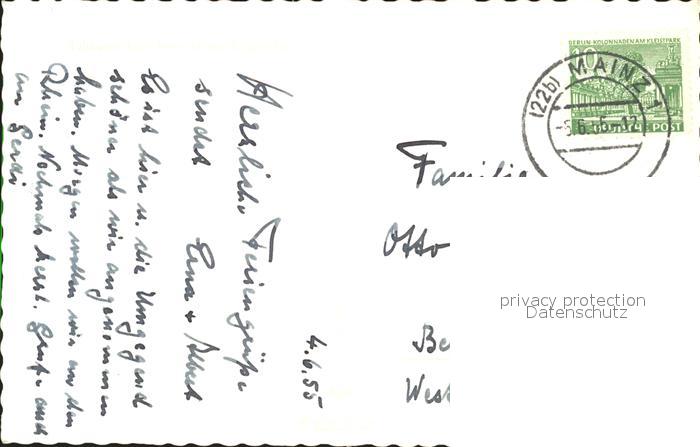 Herrliche Feriengrüße
sendet Erna + Albert
Es ist hier u. die Umgegend
schöner als wir angenommen
haben. Morgen wollen wir an den
Rhein. Nochmals herzl. Grüße auch
an Gerdi
4.6.55
BERLIN-KOLONNADEN AM KLEISTPARK
10
POST
(22b) MAINZ 1
Familie
Otto
Be
West
privacy protection
Datenschutz